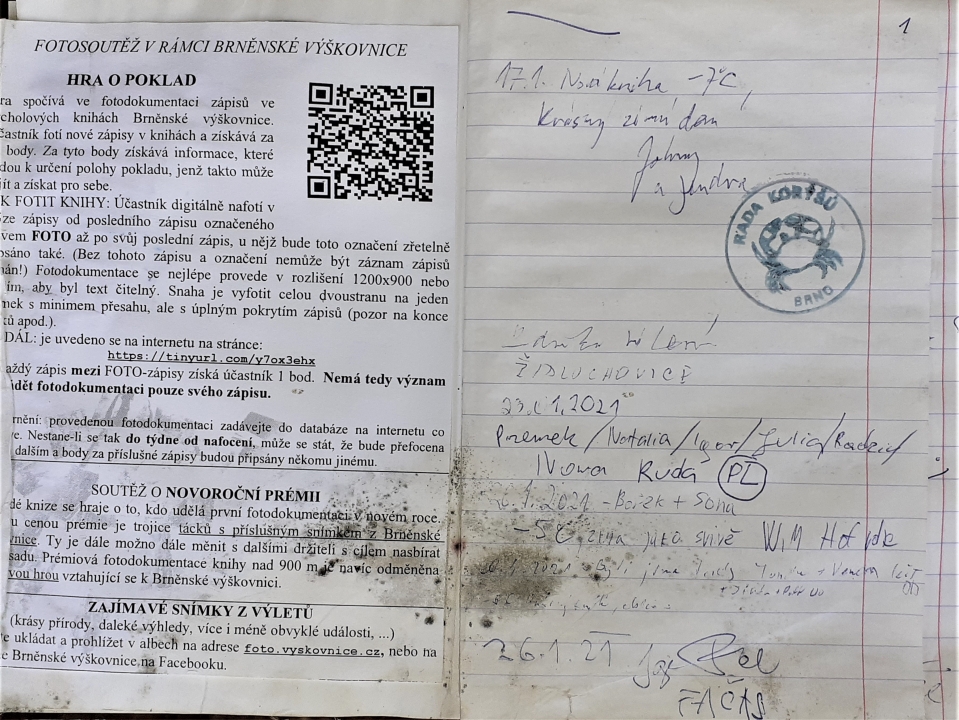 FOTOSOUTĚŽ V RÁMCI BRNĚNSKÉ VÝŠKOVNICE
HRA O POKLAD
ra spočívá ve fotodokumentaci zápisů ve
cholových knihách Brněnské výškovnice.
častník fotí nové zápisy v knihách a získává za
body. Za tyto body získává informace, které
dou k určení polohy pokladu, jenž takto může
jít a získat pro sebe.
K FOTIT KNIHY: Účastník digitálně nafotí v
ze zápisy od posledního zápisu označeného
vem FOTO až po svůj poslední zápis, u nějž bude toto označení zřetelně
psáno také. (Bez tohoto zápisu a označení nemůže být záznam zápisů
nán!) Fotodokumentace se nejlépe provede v rozlišení 1200x900 nebo
ím, aby byl text čitelný. Snaha je vyfotit celou dvoustranu na jeden
mek s minimem přesahu, ale s úplným pokrytím zápisů (pozor na konce
ků apod.).
DÁL: je uvedeno se na internetu na stránce:
https://tinyurl.com/y7ox3ehx
aždý zápis mezi FOTO-zápisy získá účastník 1 bod. Nemá tedy význam
ádět fotodokumentaci pouze svého zápisu.
rnění: provedenou fotodokumentaci zadávejte do databáze na internetu co
e. Nestane-li se tak do týdne od nafocení, může se stát, že bude přefocena
dalším a body za příslušné zápisy budou připsány někomu jinému.
SOUTĚŽ O NOVOROČNÍ PRÉMII
dé knize se hraje o to, kdo udělá první fotodokumentaci v novém roce.
u cenou prémie je trojice tácků s příslušným snímkem z Brněnské
vnice. Ty je dále možno dále měnit s dalšími držiteli s cílem nasbírat
sadu. Prémiová fotodokumentace knihy nad 900 m je navíc odměněna
vou hrou vztahující se k Brněnské výškovnici.
ZAJÍMAVÉ SNÍMKY Z VÝLETŮ
(krásy přírody, daleké výhledy, více i méně obvyklé události, ...)
e ukládat a prohlížet v albech na adrese foto.vyskovnice.cz, nebo na
ce Brněnské výškovnice na Facebooku.
1
17.1. Nová kniha -7°C,
Krásný zimní den
a Jendra
ŘÁDA KORÝŠŮ
BRNO
ŽIDLOCHOVICE
23.01.2021
Przemek/Natalia/Igor/Julia/Radek/
Nowa Ruda PL
1.2021 - Bořek + Soňa
-5°C, zima jako svině WIM Hof
26.1.21
FAČAS